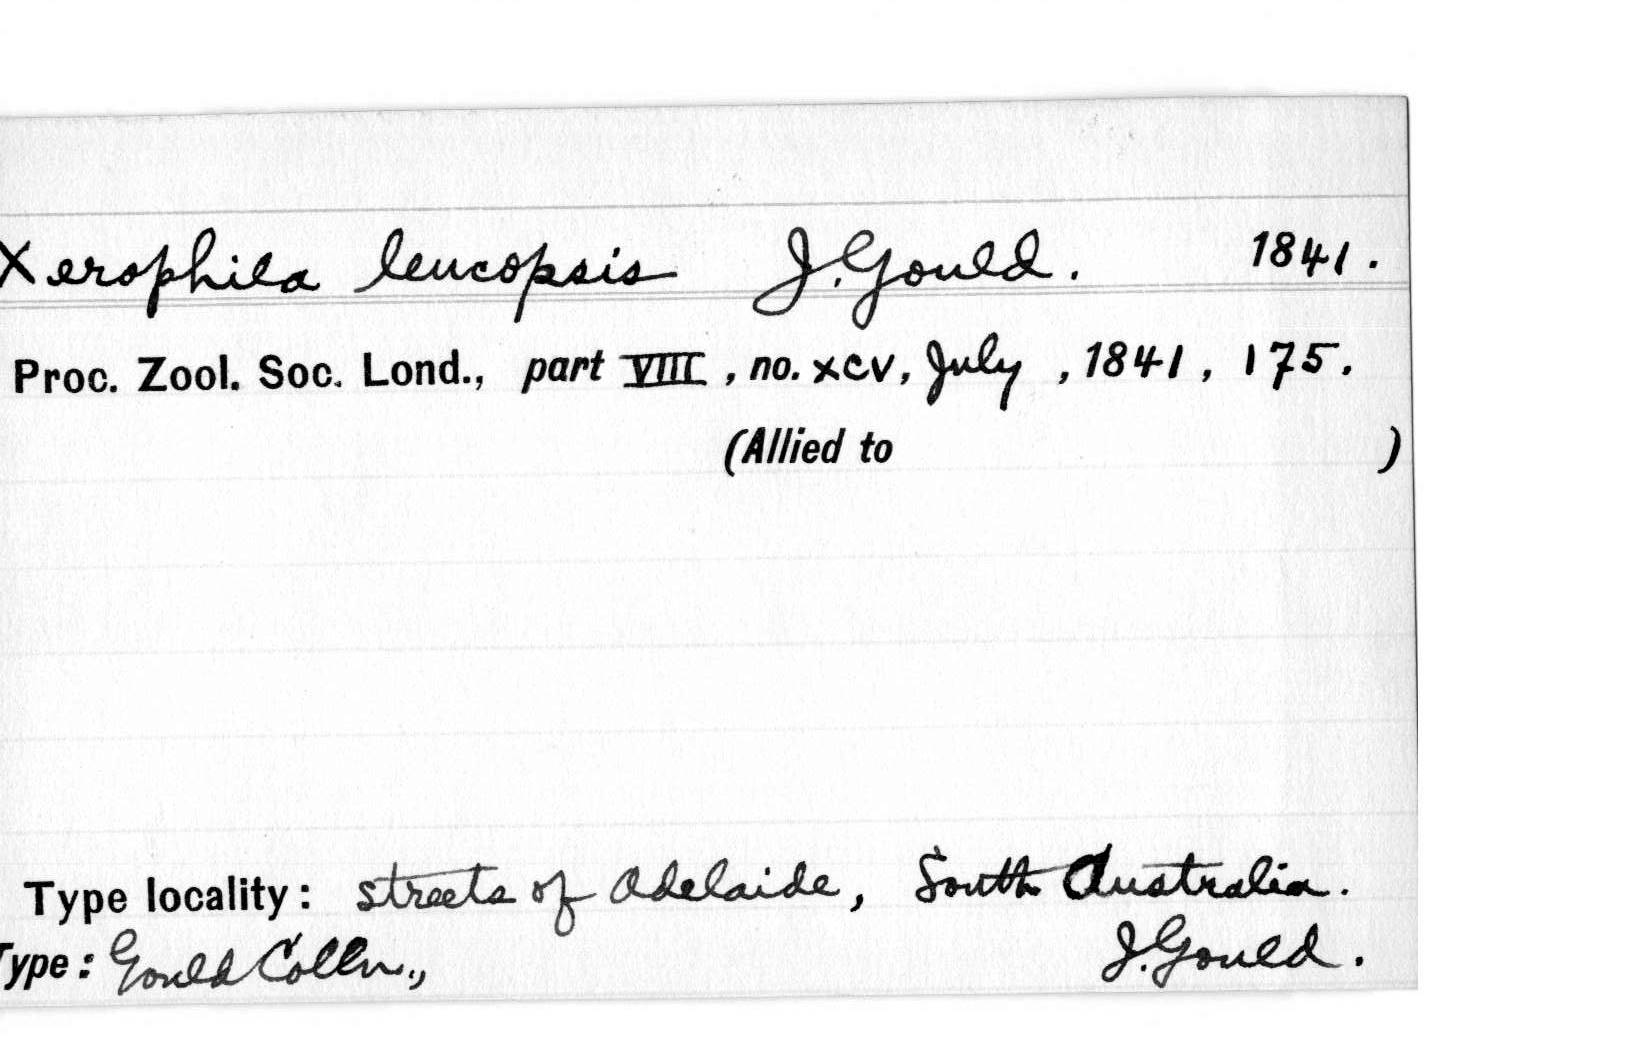 Xerophila leucopsis J. Gould. 1841.
Proc. Zool. Soc. Lond., part VIII, no. xcv, July, 1841, 175.
(Allied to )
Type locality: streets of Adelaide, South Australia.
Type: Gould Colln., J. Gould.